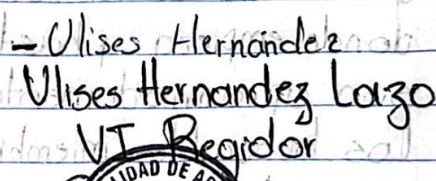 - Ulises Hernández
Ulises Hernandez Lazo
VI Regidor